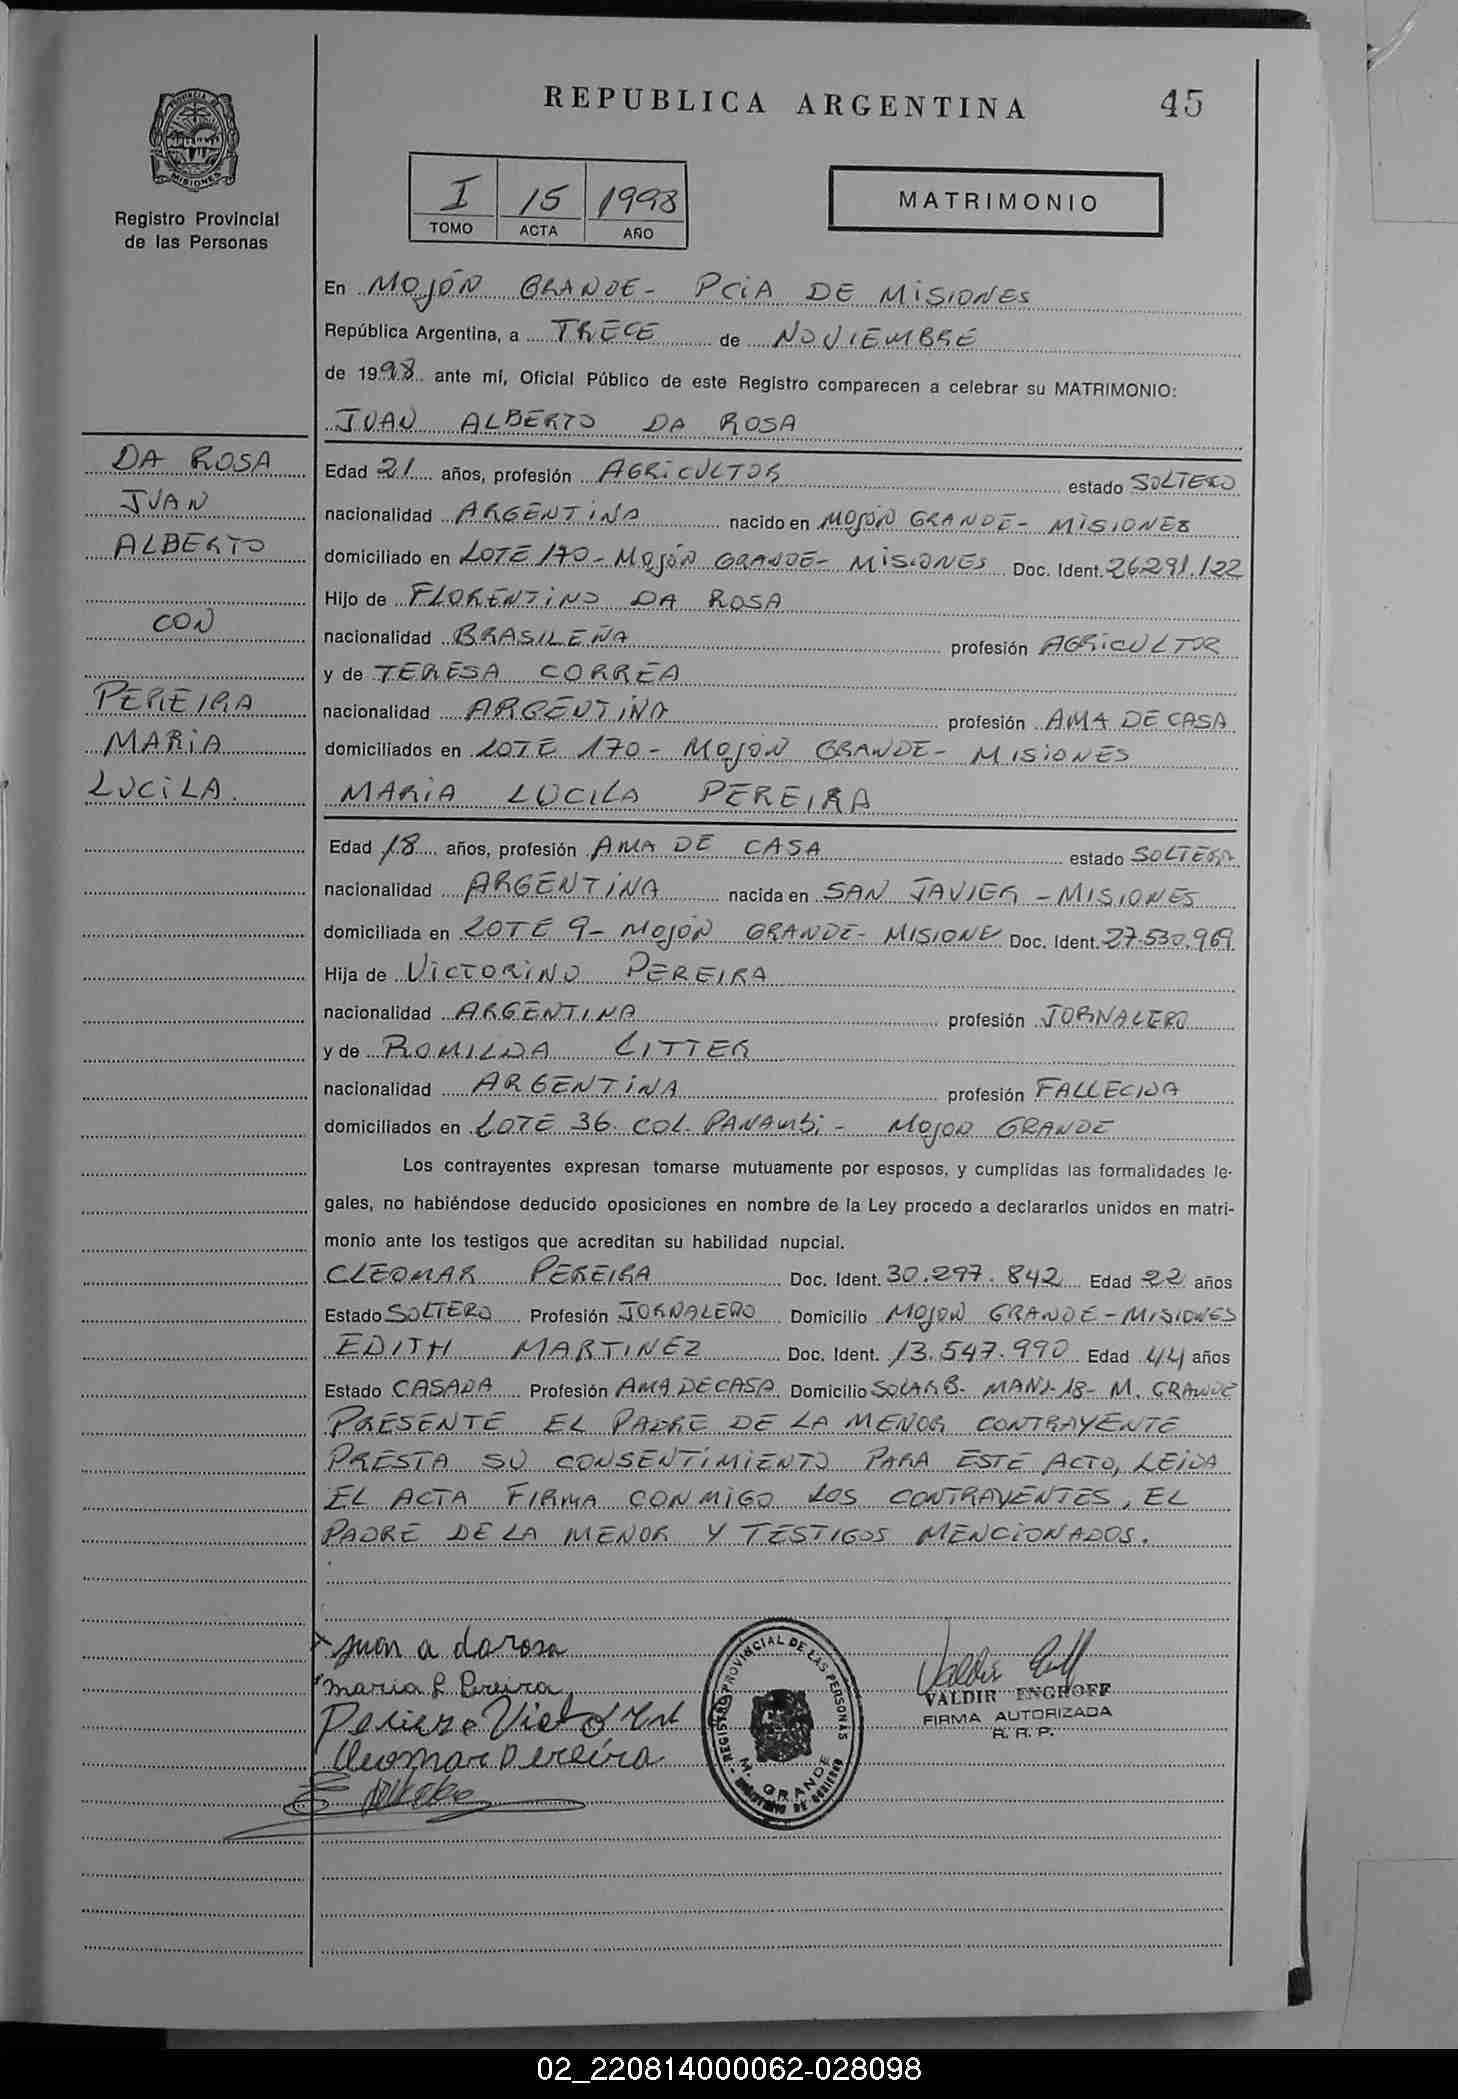 REPUBLICA ARGENTINA
45
PROVINCIA DE
MISIONES
Registro Provincial
de las Personas
I 15 1998
TOMO ACTA AÑO
MATRIMONIO
En MOJÓN GRANDE - PCIA DE MISIONES
República Argentina, a TRECE de NOVIEMBRE
de 1998 ante mí, Oficial Público de este Registro comparecen a celebrar su MATRIMONIO:
JUAN ALBERTO DA ROSA
DA ROSA
JUAN
ALBERTO
CON
PEREIRA
MARIA
LUCILA.
Edad 21 años, profesión AGRICULTOR estado SOLTERO
nacionalidad ARGENTINA nacido en MOJÓN GRANDE - MISIONES
domiciliado en LOTE 170 - MOJÓN GRANDE - MISIONES Doc. Ident. 26291.122
Hijo de FLORENTINO DA ROSA
nacionalidad BRASILEÑA profesión AGRICULTOR
y de TERESA CORREA
nacionalidad ARGENTINA profesión AMA DE CASA
domiciliados en LOTE 170 - MOJÓN GRANDE - MISIONES
MARIA LUCILA PEREIRA
Edad 18 años, profesión AMA DE CASA estado SOLTERA
nacionalidad ARGENTINA nacida en SAN JAVIER - MISIONES
domiciliada en LOTE 9 - MOJÓN GRANDE - MISIONE Doc. Ident. 27.530.969
Hija de VICTORINO PEREIRA
nacionalidad ARGENTINA profesión JORNALERO
y de ROMILDA LITTER
nacionalidad ARGENTINA profesión FALLECIDA
domiciliados en LOTE 36 COL. PANAMBI - MOJON GRANDE
Los contrayentes expresan tomarse mutuamente por esposos, y cumplidas las formalidades le-
gales, no habiéndose deducido oposiciones en nombre de la Ley procedo a declararlos unidos en matri-
monio ante los testigos que acreditan su habilidad nupcial.
CLEOMAR PEREIRA Doc. Ident. 30.297.842 Edad 22 años
Estado SOLTERO Profesión JORNALERO Domicilio MOJON GRANDE - MISIONES
EDITH MARTINEZ Doc. Ident. 13.547.990 Edad 44 años
Estado CASADA Profesión AMA DE CASA Domicilio SOLAR B - MANZ. 18 - M. GRANDE
PRESENTE EL PADRE DE LA MENOR CONTRAYENTE
PRESTA SU CONSENTIMIENTO PARA ESTE ACTO, LEIDA
EL ACTA FIRMA CONMIGO LOS CONTRAYENTES, EL
PADRE DE LA MENOR Y TESTIGOS MENCIONADOS.
Juan a darosa
maria L Pereira
Pereira
Cleomar Pereira
REGISTRO PROVINCIAL DE LAS PERSONAS
M. GRANDE
MINISTERIO DE GOBIERNO
Valdir
VALDIR ENGROFF
FIRMA AUTORIZADA
R. R. P.
02_220814000062-028098